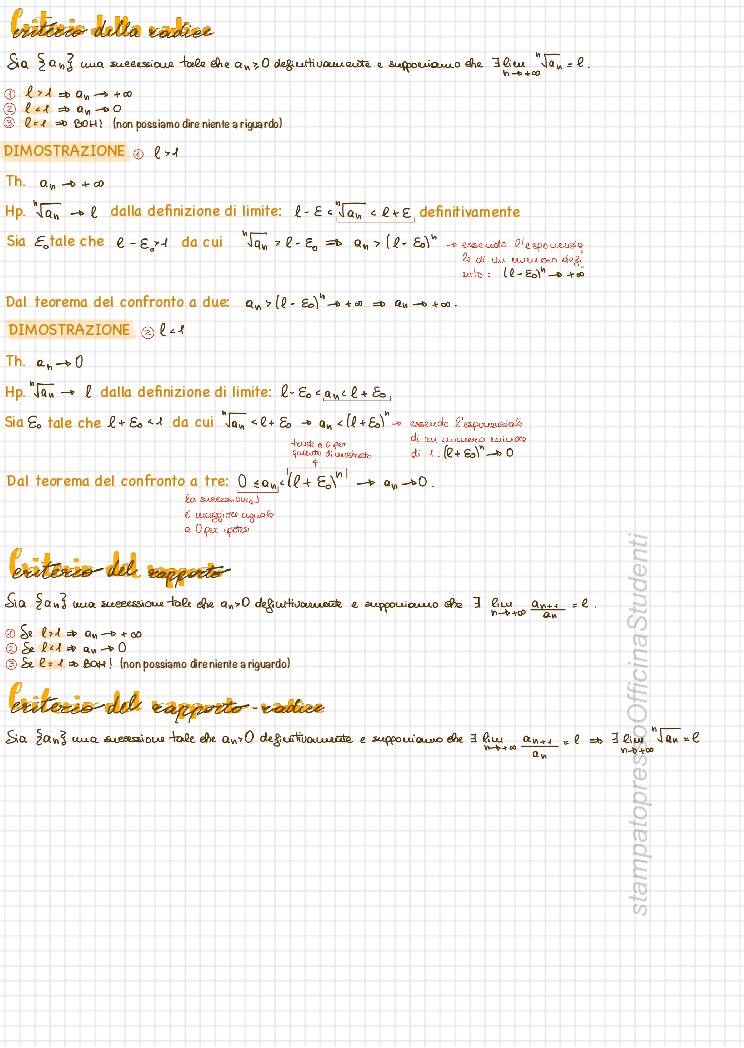 Criterio della radice
Sia {aₙ} una successione tale che aₙ ≥ 0 definitivamente e supponiamo che ∃ lim n→+∞ ⁿ√aₙ = l.
① l > 1 ⇒ aₙ → +∞
② l < 1 ⇒ aₙ → 0
③ l = 1 ⇒ BOH! (non possiamo dire niente a riguardo)
DIMOSTRAZIONE ① l > 1
Th. aₙ → +∞
Hp. ⁿ√aₙ → l dalla definizione di limite: l - ε < ⁿ√aₙ < l + ε definitivamente
Sia ε₀ tale che l - ε₀ > 1 da cui ⁿ√aₙ > l - ε₀ ⇒ aₙ > (l - ε₀)ⁿ → essendo l'esponenzia
le di un numero defi
nito: (l - ε₀)ⁿ → +∞
Dal teorema del confronto a due: aₙ > (l - ε₀)ⁿ → +∞ ⇒ aₙ → +∞.
DIMOSTRAZIONE ② l < 1
Th. aₙ → 0
Hp. ⁿ√aₙ → l dalla definizione di limite: l - ε₀ < aₙ < l + ε₀
Sia ε₀ tale che l + ε₀ < 1 da cui ⁿ√aₙ < l + ε₀ → aₙ < (l + ε₀)ⁿ → essendo l'esponenziale
di un numero minore
di 1: (l + ε₀)ⁿ → 0
tende a 0 per
quanto di mostrato
Dal teorema del confronto a tre: 0 ≤ aₙ < (l + ε₀)ⁿ → aₙ → 0.
la successione
è maggiore uguale
a 0 per ipotesi
Criterio del rapporto
Sia {aₙ} una successione tale che aₙ > 0 definitivamente e supponiamo che ∃ lim n→+∞ aₙ₊₁/aₙ = l.
① Se l > 1 ⇒ aₙ → +∞
② Se l < 1 ⇒ aₙ → 0
③ Se l = 1 ⇒ BOH! (non possiamo dire niente a riguardo)
Criterio del rapporto-radice
Sia {aₙ} una successione tale che aₙ > 0 definitivamente e supponiamo che ∃ lim n→+∞ aₙ₊₁/aₙ = l ⇒ ∃ lim n→+∞ ⁿ√aₙ = l
stampatopressoOfficinaStudenti